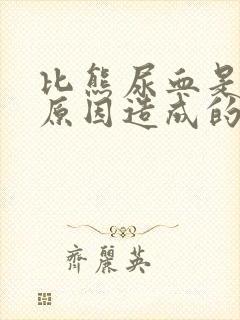 比熊尿血是
原因造成的
齐丽英